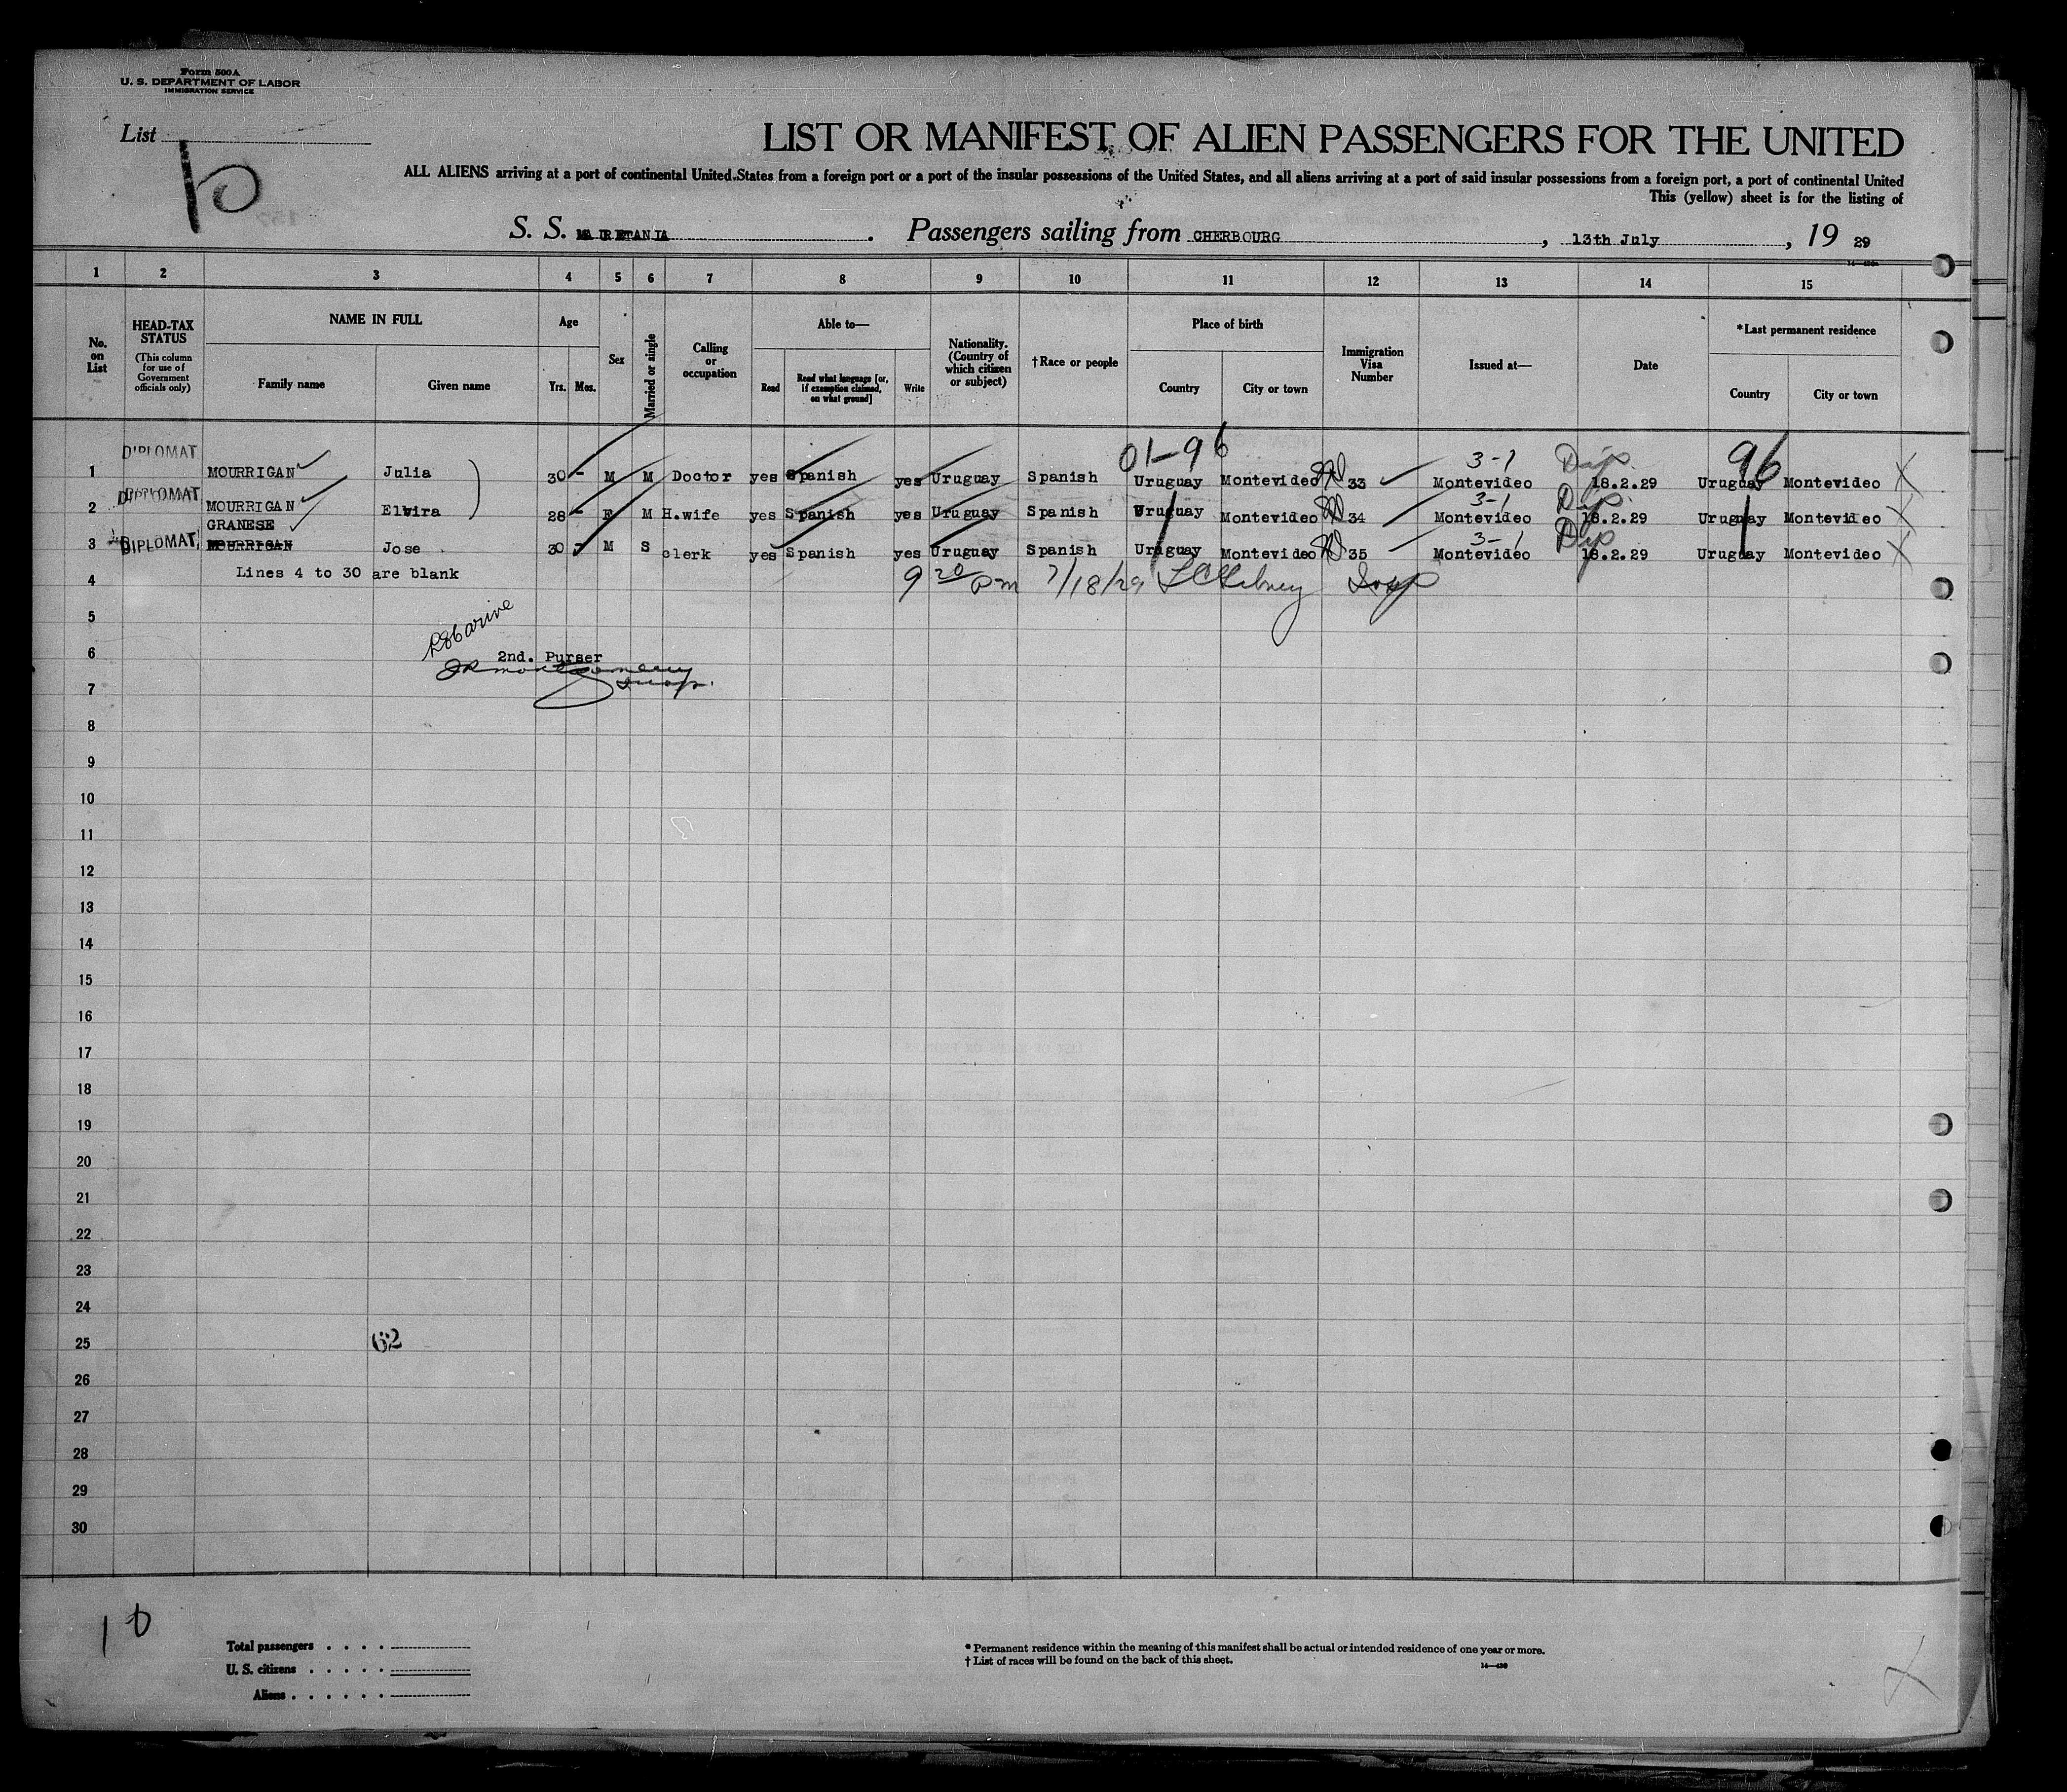 Form 500A
U. S. DEPARTMENT OF LABOR
IMMIGRATION SERVICE
List
10
LIST OR MANIFEST OF ALIEN PASSENGERS FOR THE UNITED
ALL ALIENS arriving at a port of continental United States from a foreign port or a port of the insular possessions of the United States, and all aliens arriving at a port of said insular possessions from a foreign port, a port of continental United
This (yellow) sheet is for the listing of
S. S. MAURETANIA. Passengers sailing from CHERBOURG, 13th July, 19 29
1 2 3 4 5 6 7 8 9 10 11 12 13 14 15
No. on List
HEAD-TAX STATUS
(This column for use of Government officials only)
NAME IN FULL
Family name Given name
Age
Yrs. Mos.
Sex
Married or single
Calling or occupation
Able to—
Read Read what language [or, if exemption claimed, on what ground] Write
Nationality. (Country of which citizen or subject)
†Race or people
Place of birth
Country City or town
Immigration Visa Number
Issued at—
Date
*Last permanent residence
Country City or town
01-96 3-1 Dip. 96
1 DIPLOMAT MOURRIGAN Julia 30 - M M Doctor yes Spanish yes Uruguay Spanish Uruguay Montevideo 33 Montevideo 18.2.29 Uruguay Montevideo X
3-1 Dip.
2 DIPLOMAT MOURRIGAN Elvira 28 - F M H.wife yes Spanish yes Uruguay Spanish Uruguay Montevideo 34 Montevideo 18.2.29 Uruguay Montevideo X
GRANESE 3-1 Dip
3 DIPLOMAT MOURRIGAN Jose 30 - M S clerk yes Spanish yes Uruguay Spanish Uruguay Montevideo 35 Montevideo 18.2.29 Uruguay Montevideo X
4 Lines 4 to 30 are blank 9 20 pm 7/18/29 Insp
5
6 2nd. Purser
Montgomery
7 Insp.
8
9
10
11
12
13
14
15
16
17
18
19
20
21
22
23
24
25 62
26
27
28
29
30
10
Total passengers . . . .
U. S. citizens . . . . .
Aliens . . . . . .
* Permanent residence within the meaning of this manifest shall be actual or intended residence of one year or more.
† List of races will be found on the back of this sheet.
14—430
X